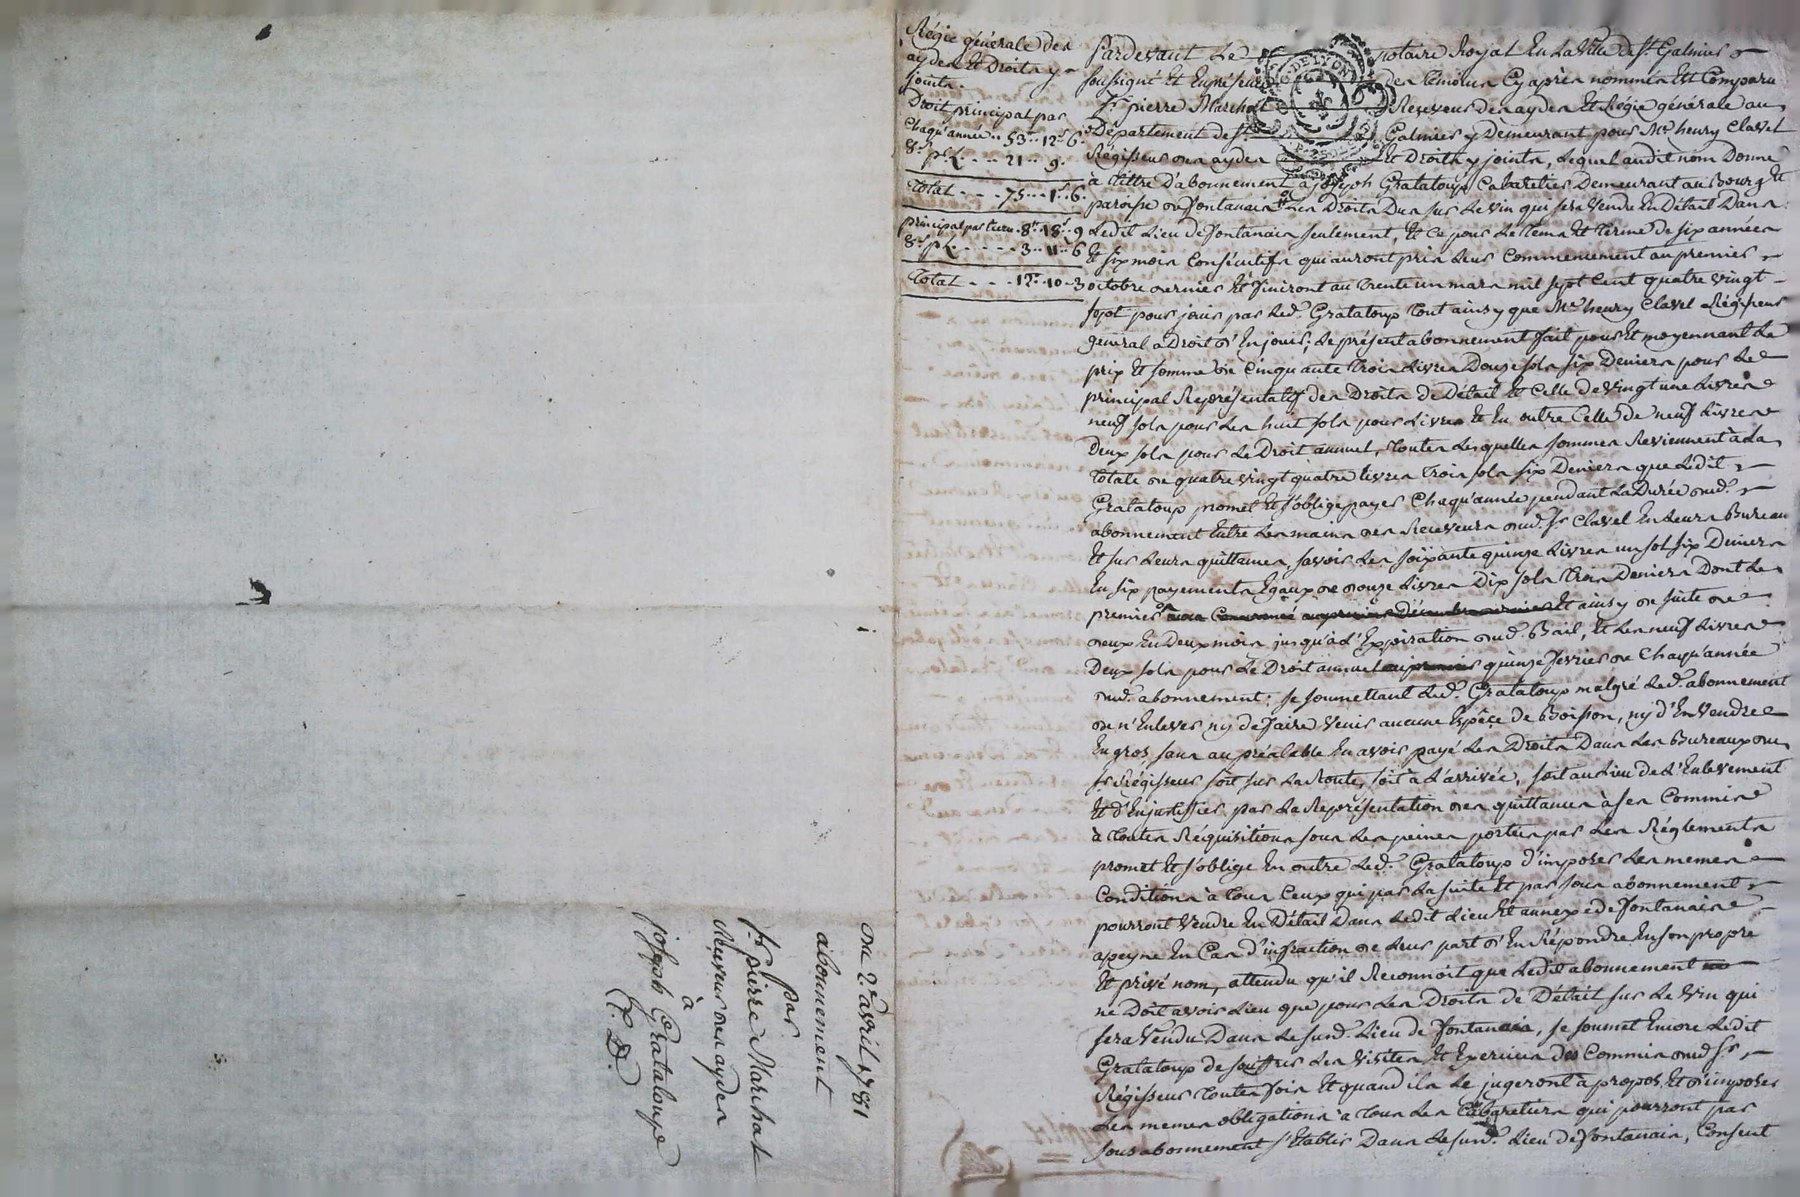 Régie générale des
aydes et Droits y
joints.
Droit principal par
chaqu'année .. 53ˡ.. 12ˢ.. 6
8ˢ. pʳ ₶ - - - 21 .. 9.
Total - - - 75 .. 1ˢ.. 6.
principal par tiers . 8ˡ. 18ˢ. 9
8ˢ. pʳ ₶ - - - - 3 .. 11ˢ.. 6
Total - - - 12ˡ. 10 .. 3
Pardevant Le notaire Royal En La Ville de Sᵗ. Galmier
soussigné Et En présence des témoins Cy après nommés Est Comparu
Sʳ. pierre Marchat Receveur des aydes Et Régie générale au
Département de Sᵗ. Galmier y Demeurant pour Mʳᵉ henry Clavel
Régisseur des aydes Et Droits y joints, Lequel audit nom Donne
à tittre D'abonnement à joseph Grataloup Cabaretier Demeurant au Bourg Et
paroisse de fontanais Les Droits Dus sur Le vin qui sera Vendu En Détail Dans
Ledit Lieu de fontanais seulement, Et Ce pour Le tems Et terme de six années
Et six mois Consécutifs qui auront pris Leur Commencement au premier
octobre dernier Et finiront au trente un mars mil sept Cent quatre vingt
sept pour jouir par Led. Grataloup tout ainsy que Mʳᵉ henry Clavel Régisseur
général a Droit d'En jouir; Le présent abonnement fait pour Et moyennant Le
prix Et somme de Cinquante trois Livres Douze sols six Deniers pour Le
principal Représentatif des Droits de Détail Et Celle de vingt une Livres
neuf sols pour Les huit sols pour Livre Et En outre Celle de neuf Livres
Deux sols pour Le Droit annuel, toutes Lesquelles sommes Reviennent à La
totale de quatre vingt quatre livres trois sols six Deniers que Ledit
Grataloup promet Et s'oblige payer Chaqu'année pendant La Durée dud.
abonnement Entre Les mains des Receveurs dud. Sʳ Clavel En Leurs Bureau
Et sur Leurs quittances, savoir Les soixante quinze Livres un sol six Deniers
En six payements Egaux de douze Livres Dix sols trois Deniers Dont Le
premier Et ainsy de suite de
deux En Deux mois jusqu'à L'Expiration dud. Bail, Et Les neuf Livres
Deux sols pour Le Droit annuel quinze fevrier de Chaqu'année
dud. abonnement; se soumettant Led. Grataloup malgré Led. abonnement
de n'Enlever ny de faire Venir aucune Espèce de Boisson, ny d'En Vendre
En gros, sans au préalable En avoir payé Les Droits Dans Les Bureaux du
Sʳ Régisseur soit sur La Route, soit à L'arrivée, soit au Lieu de L'Enlevement
Et d'En justiffier par La Représentation des quittances à ses Commis
à toutes Réquisitions sous Les peines portées par Les Réglements
promet Et s'oblige En outre Led. Grataloup d'imposer Les memes
Conditions à tous Ceux qui par La suite Et par sous abonnement
pourront Vendre En Détail Dans Ledit Lieu Et annexe de fontanais
a peyne En Cas d'infraction de Leur part d'En Répondre En son propre
Et privé nom, attendu qu'il Reconnoit que Ledit abonnement
ne Doit avoir Lieu que pour Les Droits de Détail sur Le Vin qui
sera Vendu Dans Le susd. Lieu de fontanais, se soumet Encore Ledit
Grataloup de souffrir Les Visites Et Exercices des Commis dud Sʳ
Régisseur toutes fois Et quand ils Le jugeront à propos, Et d'imposer
Les memes obligations à tous Les Cabaretiers qui pourront par
sous abonnement s'Etablir Dans Le susd. Lieu de fontanais, Consent
du 2ᵉ. avril 1781
abonnement
par
Sʳ. pierre Marchat
Receveur des aydes
à
joseph Grataloup